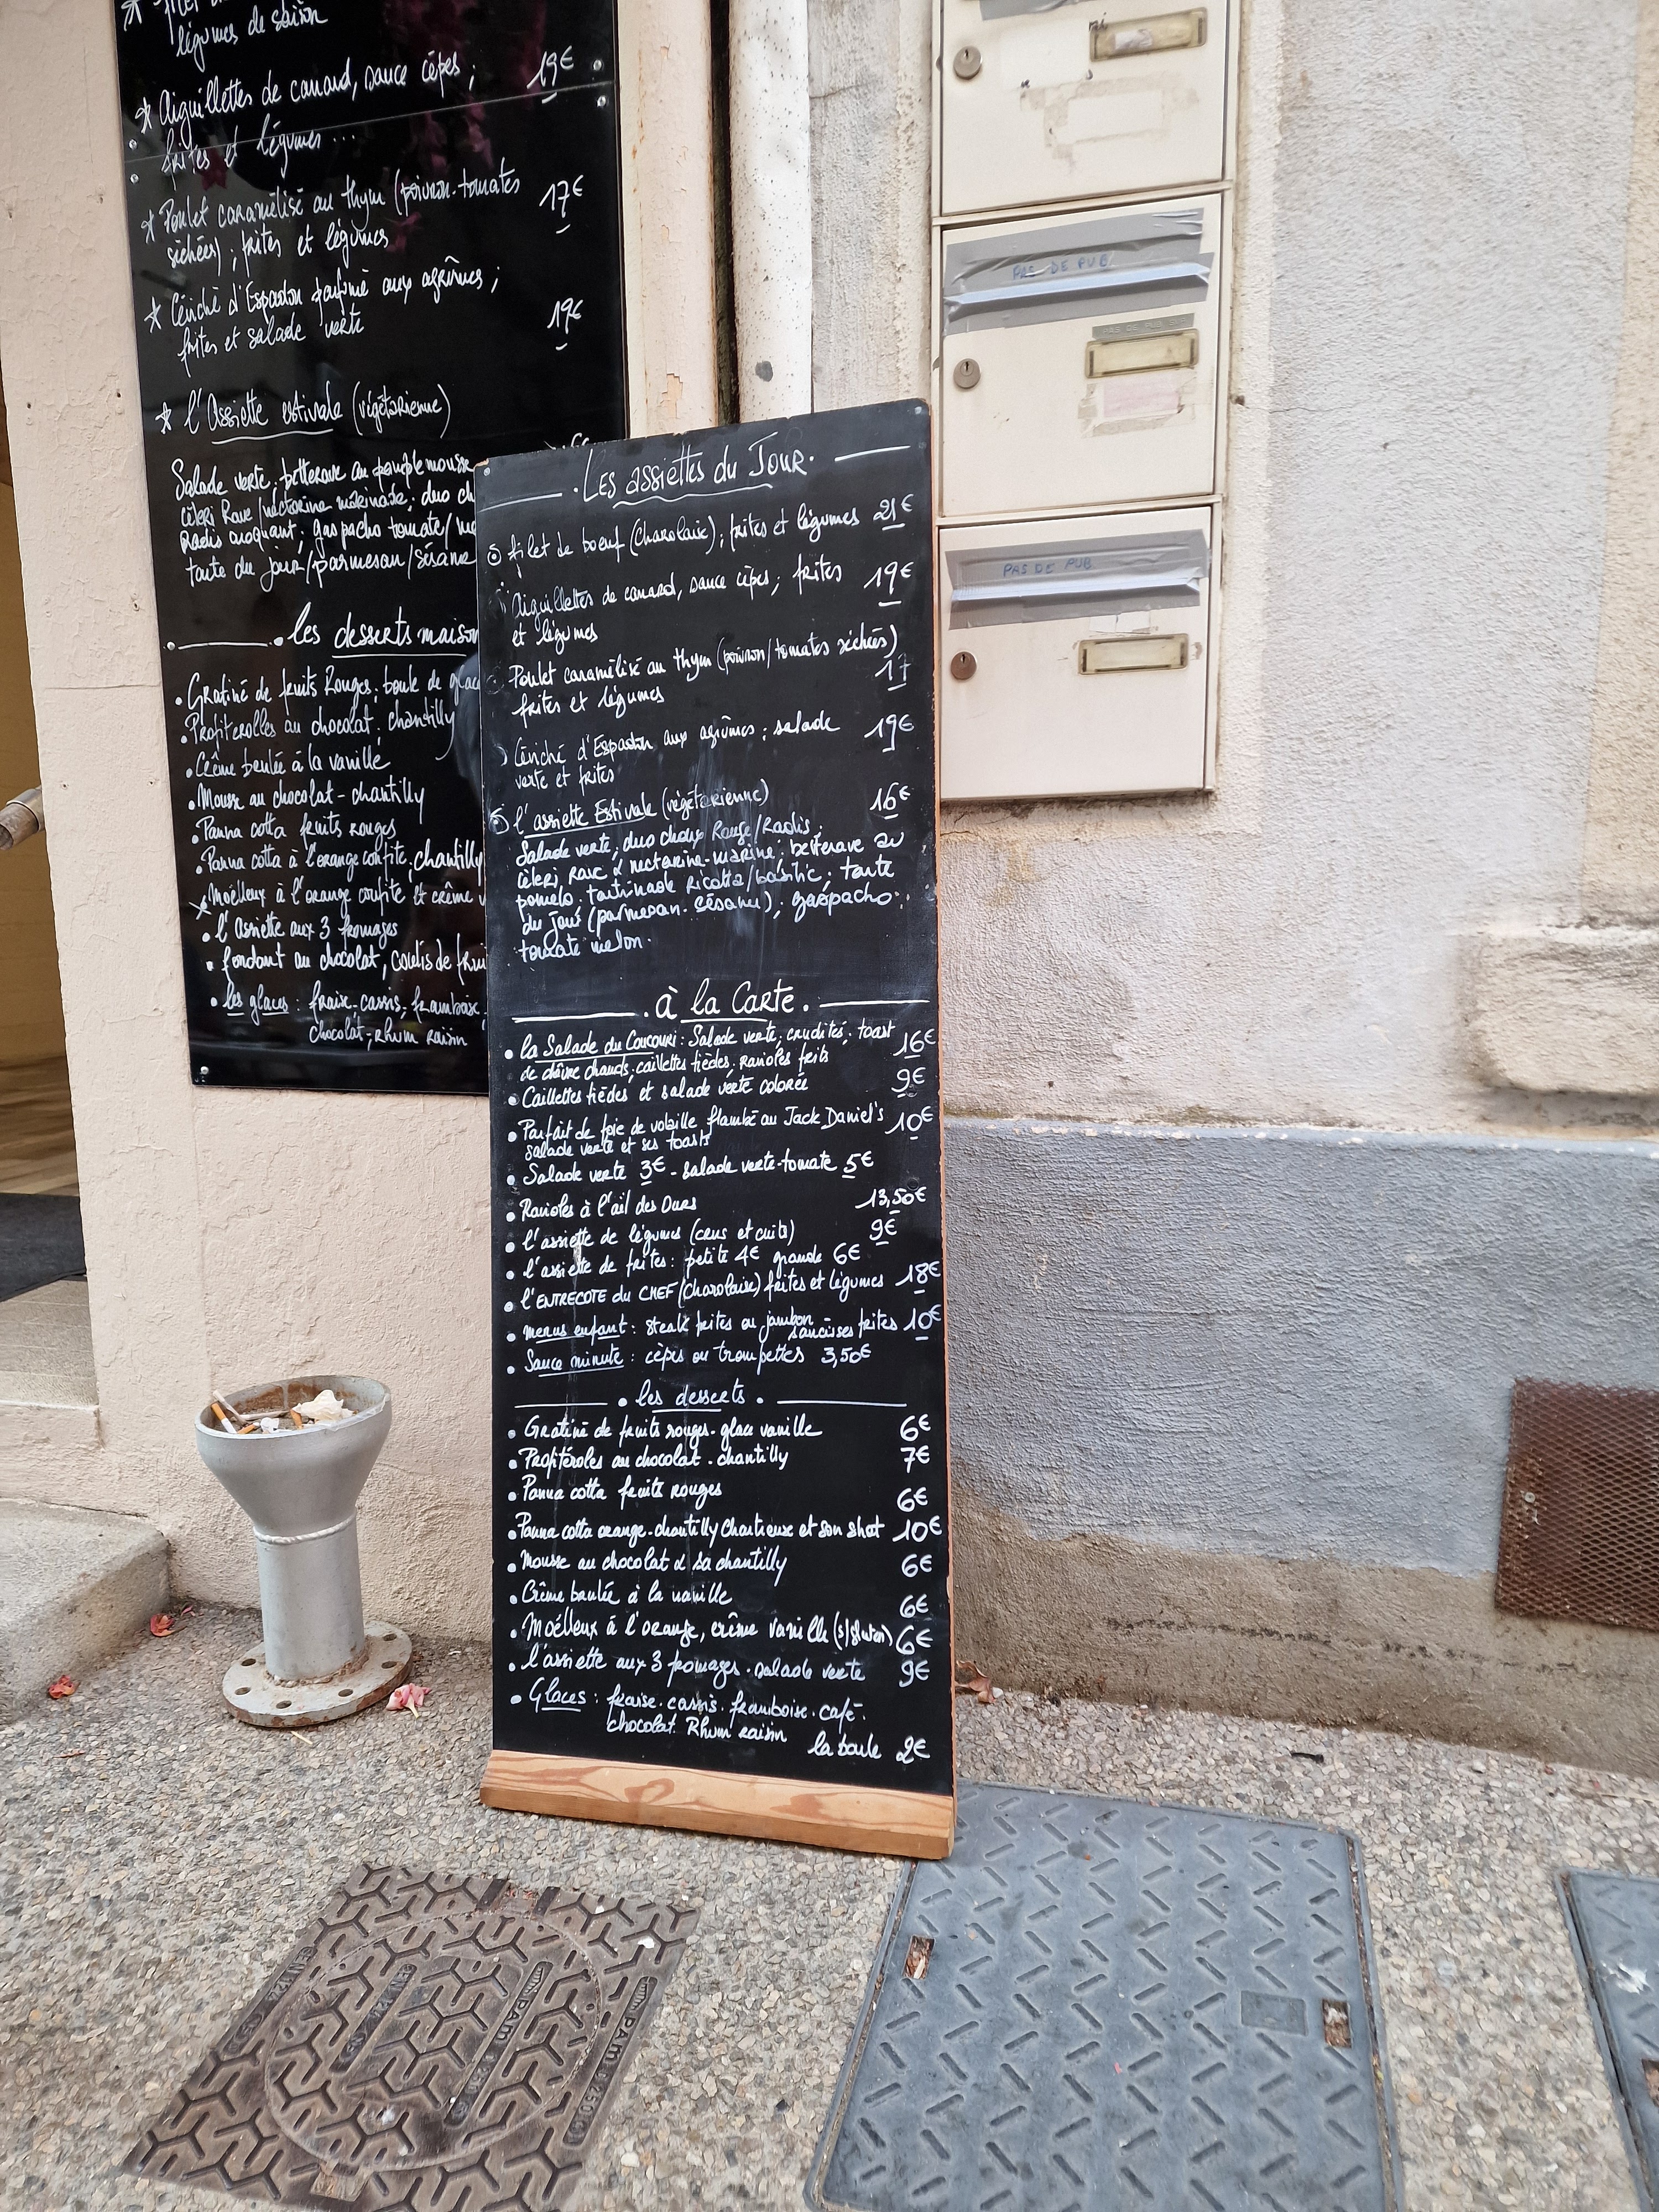 légumes de saison
* Aiguillettes de canard, sauce cèpes ; 19€
frites et légumes ...
* Poulet caramélisé au thym (poivron-tomates 17€
séchées) ; frites et légumes
* Céviché d'Espadon parfumé aux agrûmes ; 19€
frites et salade verte
* l'Assiette estivale (végétarienne)
Salade verte. betterave au pamplemousse
céleri Rave/nectarine marinade; duo ch
Radis croquant; gaspacho tomate/me
tarte du jour/parmesan/sésame
. les desserts maison
. Gratiné de fruits Rouges. boule de glace
. Profiterolles au chocolat. chantilly
. Crême brulée à la vanille
. Mousse au chocolat - chantilly
. Panna cotta fruits rouges
. Panna cotta à l'orange confite. chantilly
* Moëlleux à l'orange confite et crême v
. l'Assiette aux 3 fromages
. fondant au chocolat, coulis de frui
. les glaces : fraise-cassis, framboise.
chocolat-Rhum raisin
. Les assiettes du Jour.
filet de boeuf (Charolais); frites et légumes 21€
Aiguillettes de canard, sauce cèpes ; frites 19€
et légumes
Poulet caramélisé au thym (poivron/tomates séchées)
frites et légumes 17
Céviché d'Espadon aux agrûmes ; salade 19€
verte et frites
l'assiette Estivale (végétarienne) 16€
Salade verte; duo choux Rouge/Radis;
céleri Rave & nectarine-marine; betterave au
pomelo. tartinade ricotta/basilic; tarte
du jour (parmesan. césame); gaspacho:
tomate melon.
. à la Carte.
. la Salade du Coucouri : Salade verte, crudités, toast 16€
de chèvre chauds, caillettes tièdes, ravioles frits
. Caillettes tièdes et salade verte colorée 9€
. Parfait de foie de volaille flambé au Jack Daniel's 10€
salade verte et ses toasts
. Salade verte 3€ - salade verte-tomate 5€
. Ravioles à l'ail des Ours 13,50€
. l'assiette de légumes (crus et cuits) 9€
. l'assiette de frites : petite 4€ grande 6€
. l'ENTRECOTE du CHEF (Charolaise) frites et légumes 18€
. menus enfant : steak frites ou jambon saucisses frites 10€
. Sauce minute : cèpes ou trompettes 3,50€
. les desserts.
. Gratiné de fruits rouges-glace vanille 6€
. Profitéroles au chocolat - chantilly 7€
. Panna cotta fruits rouges 6€
. Panna cotta orange-chantilly Chartreux et son shot 10€
. Mousse au chocolat & sa chantilly 6€
. Crême brulée à la vanille 6€
. Moëlleux à l'orange, crême vanille (s/gluten) 6€
. l'assiette aux 3 fromages. salade verte 9€
. Glaces : fraise. cassis. framboise. café.
chocolat. Rhum raisin
la boule 2€
PAS DE PUB
PAS DE PUB
PAS DE PUB
PAM
PAM